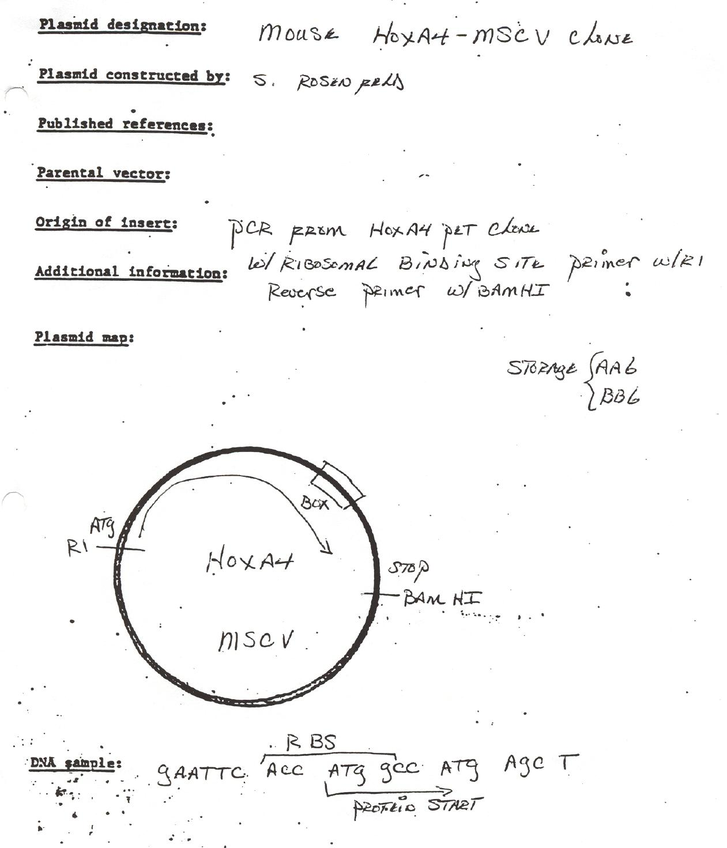 Plasmid designation: MOUSE HOXA4-MSCV CLONE
Plasmid constructed by: S. ROSENFELD
Published references:
Parental vector:
Origin of insert: PCR FROM HOXA4 PET CLONE
Additional information: W/ RIBOSOMAL BINDING SITE PRIMER W/R1
Reverse primer W/ BAMHI
Plasmid map:
STORAGE { AA6
BB6
BOX
ATG
R1
HOXA4
STOP
BAM HI
MSCV
RBS
DNA sample: GAATTC ACC ATG GCC ATG AGC T
PROTEIN START